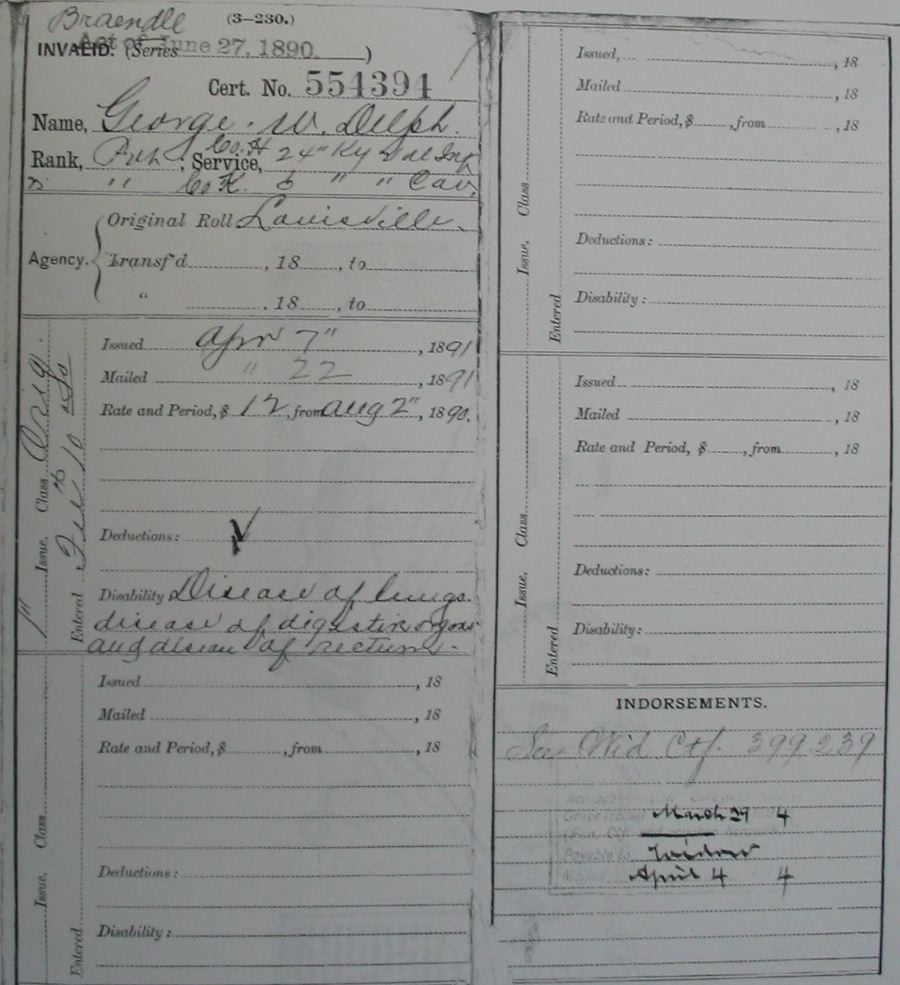 Braendle
(3–230.)
Act of June 27, 1890.
INVALID. (Series )
Cert. No. 551394
Name, George W. Delph.
Rank, Priv, Co. H Service, 24" Ky Vol Inf
" Co K. 6 " " Cav.
Agency.
Original Roll Louisville.
Transf'd , 18 , to
" , 18 , to
Issue, Class
Entered
Issued Apr 7" , 1891
Mailed " 22 , 1891
Rate and Period, $ 12, from Aug 2", 1890.
Deductions:
Disability Disease of lungs.
disease of digestive organs
and disease of rectum.
Issue, Class
Entered
Issued , 18
Mailed , 18
Rate and Period, $ , from , 18
Deductions:
Disability:
Issue, Class
Entered
Issued, , 18
Mailed , 18
Rate and Period, $ , from , 18
Deductions:
Disability:
Issue, Class
Entered
Issued , 18
Mailed , 18
Rate and Period, $ , from , 18
Deductions:
Disability:
INDORSEMENTS.
See Wid Ctf. 399239
March 29 4
Payable to widow
April 4 4